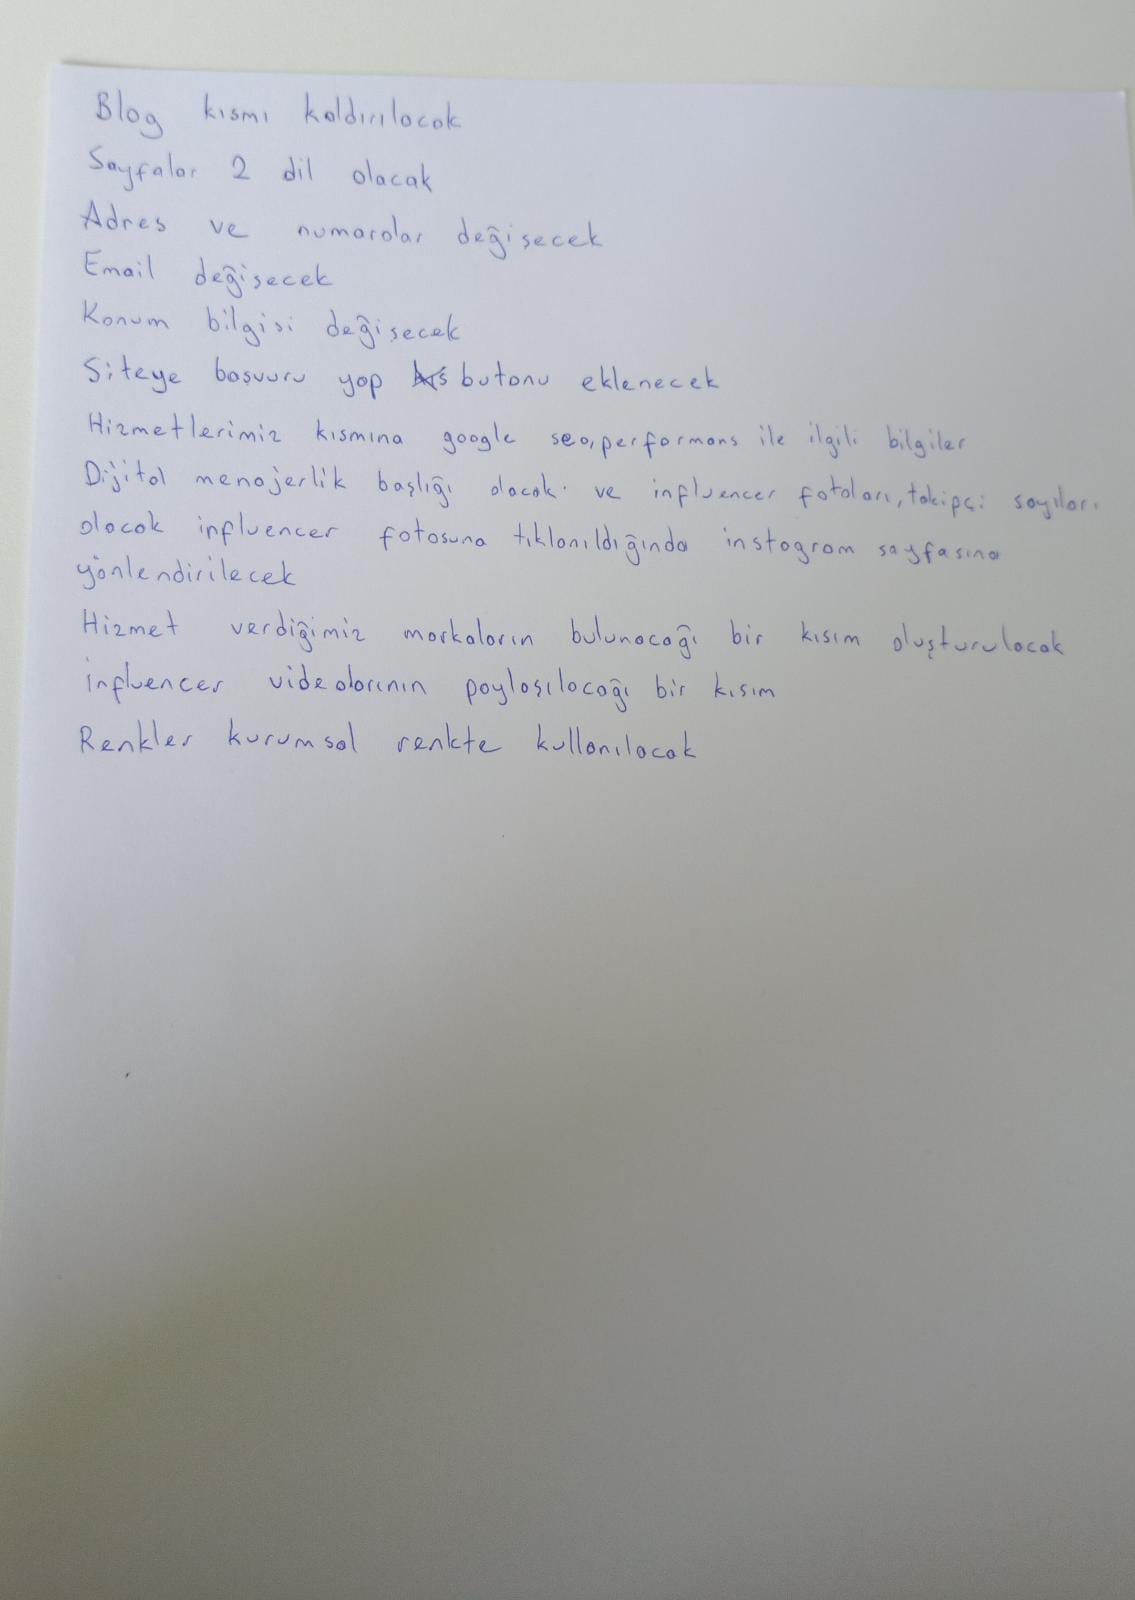 Blog kısmı kaldırılacak
Sayfalar 2 dil olacak
Adres ve numaralar değişecek
Email değişecek
Konum bilgisi değişecek
Siteye başvuru yap butonu eklenecek
Hizmetlerimiz kısmına google seo, performans ile ilgili bilgiler
Dijital menajerlik başlığı olacak. ve influencer fotoları, takipçi sayıları
olacak influencer fotosuna tıklanıldığında instagram sayfasına
yönlendirilecek
Hizmet verdiğimiz markaların bulunacağı bir kısım oluşturulacak
influencer videolarının paylaşılacağı bir kısım
Renkler kurumsal renkte kullanılacak